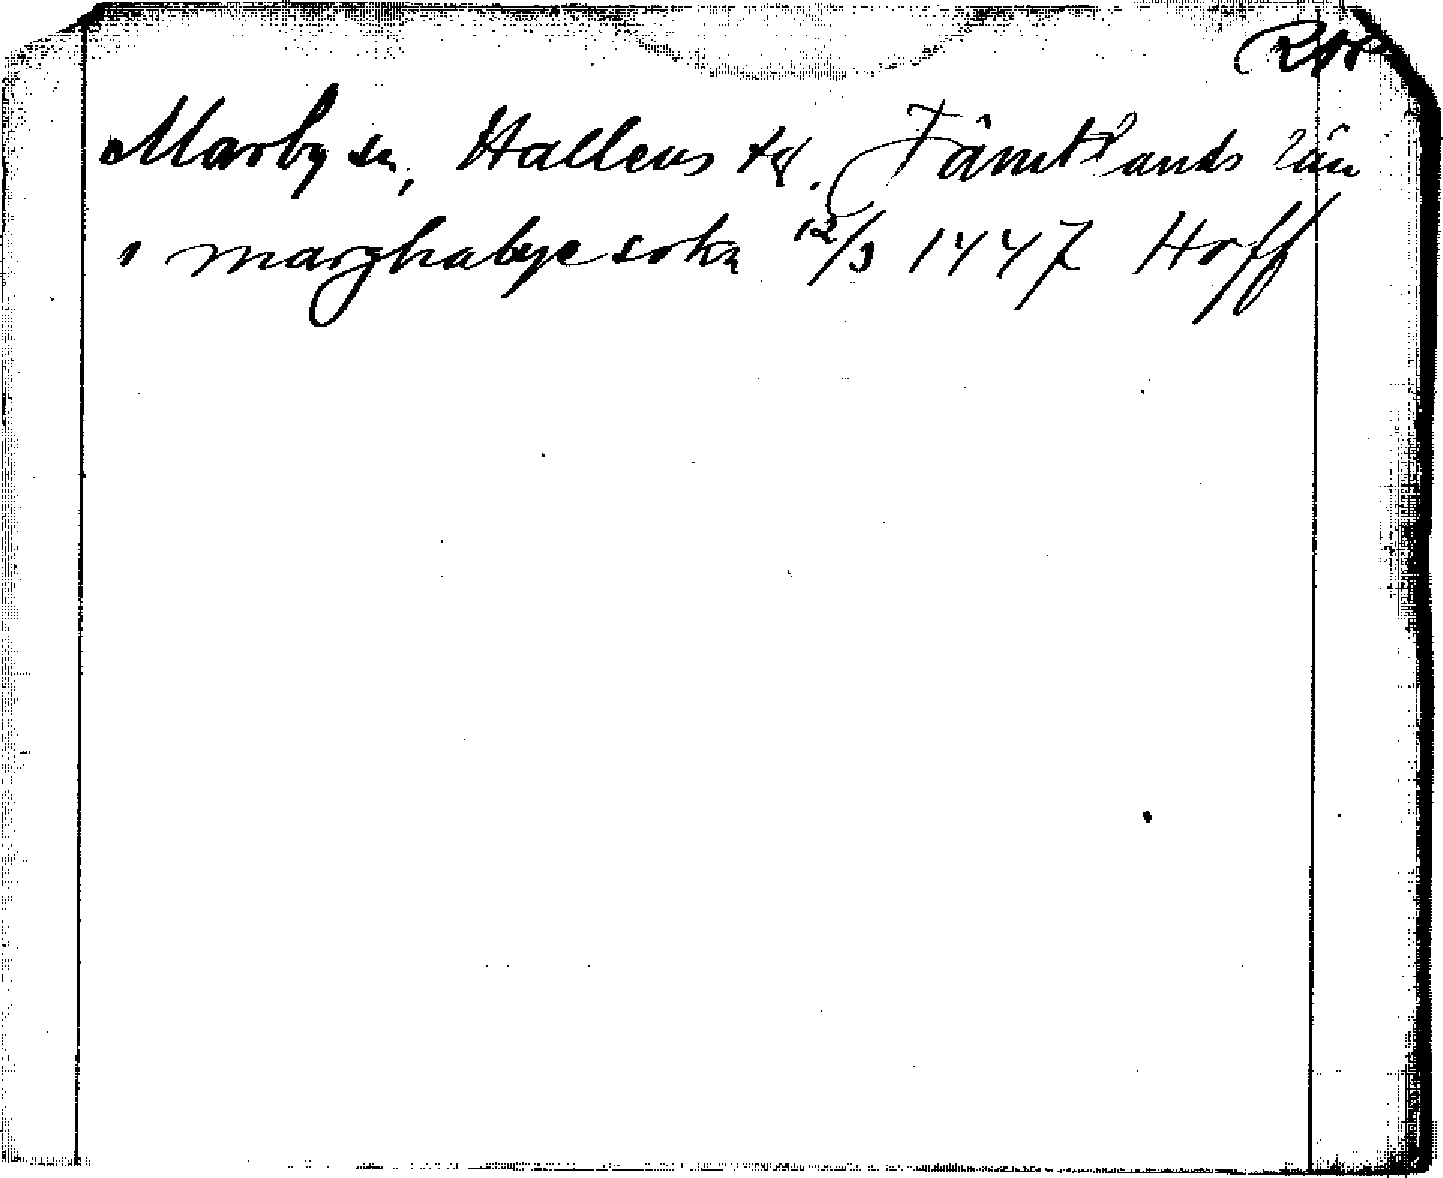 Marby sn, Hallens tg. Jämtlands län
i marghabye sokn 12/3 1447 Hoff